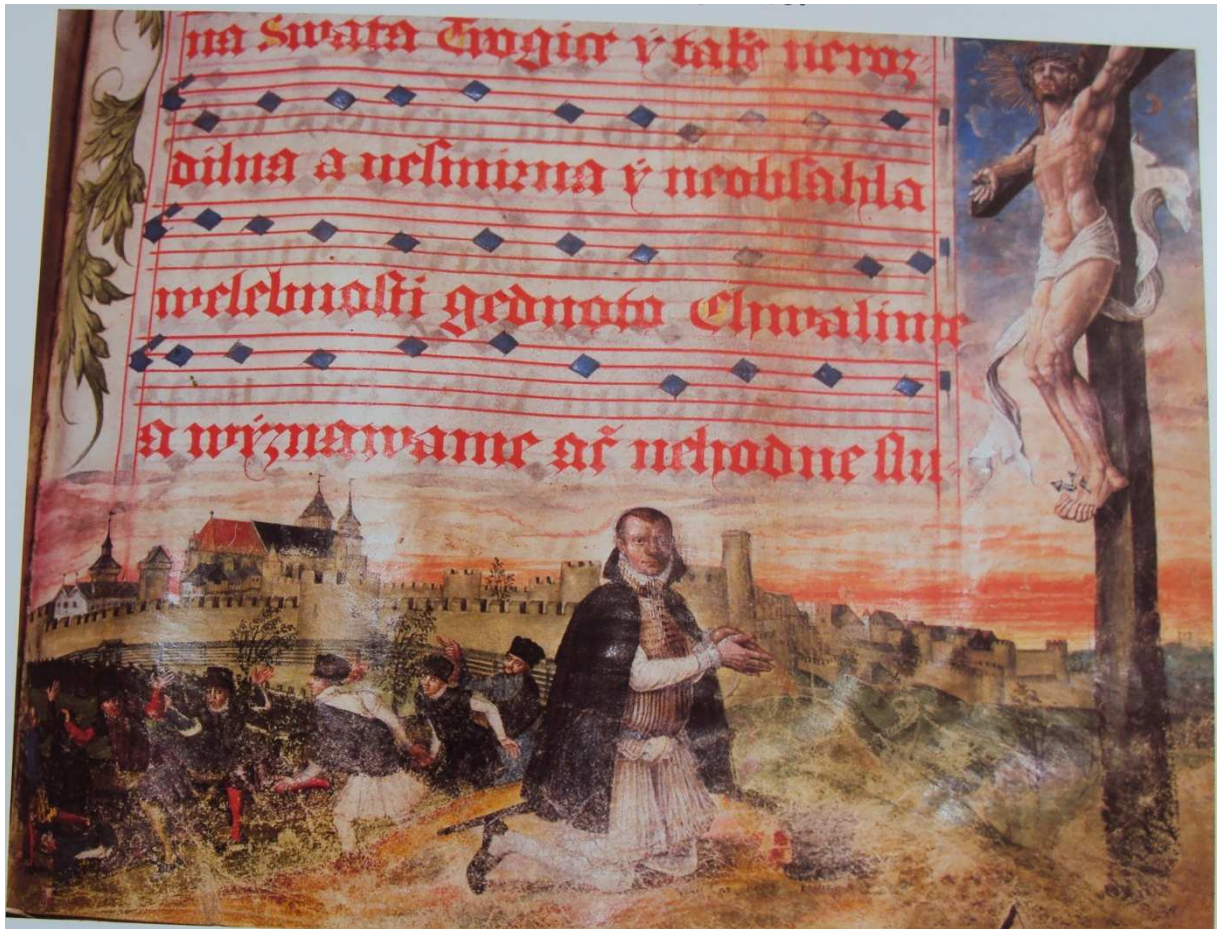 na Swata Trogice ý také neroz-
dilna a nesmirna ý neobsáhla
welebnosti gednoto Chwalime
a wýznawame ač nehodne slu-